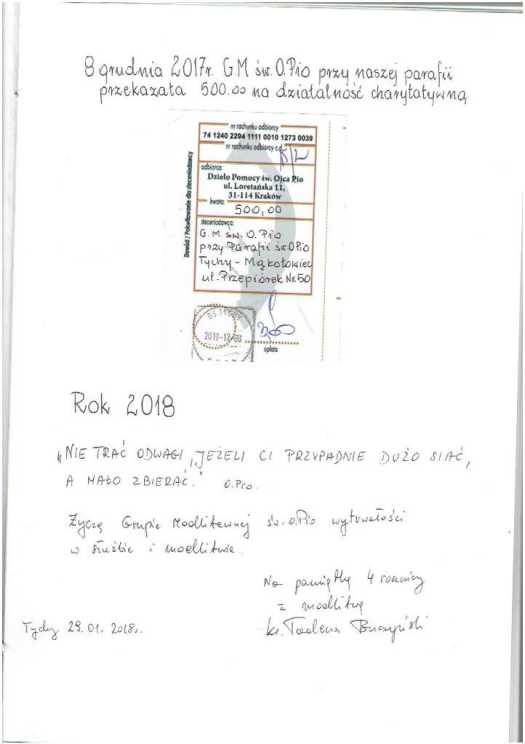 8 grudnia 2017r. G.M św. O.Pio przy naszej parafii
przekazała 500.00 na działalność charytatywną
nr rachunku odbiorcy
74 1240 2294 1111 0010 1273 0039
nr rachunku odbiorcy c.d.
odbiorca:
Dzieło Pomocy św. Ojca Pio
ul. Loretańska 11,
31-114 Kraków
kwota:
500,00
zleceniodawca:
G.M św. O. Pio
przy Parafii św.O.Pio
Tychy - Mąkołowiec
ul. Przepiórek Nr 50
Dowód / Pokwitowanie dla zleceniodawcy
2017-12-08
opłata
Rok 2018
"NIE TRAĆ ODWAGI, JEŻELI CI PRZYPADNIE DUŻO SIAĆ,
A MAŁO ZBIERAĆ." O.Pio.
Życzę Grupie Modlitewnej św. O.Pio wytrwałości
w służbie i modlitwie.
Na pamiątkę 4 rocznicy
z modlitwą
ks. Tadeusz
Tychy 29.01.2018r.